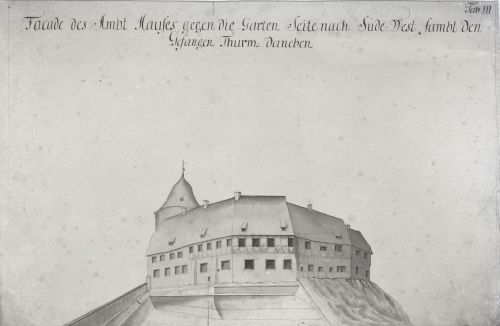 Tab III
Facade des Ambt Hauses gegen die Garten Seite nach Sude West sambt den
Gefangen Thurm Daneben